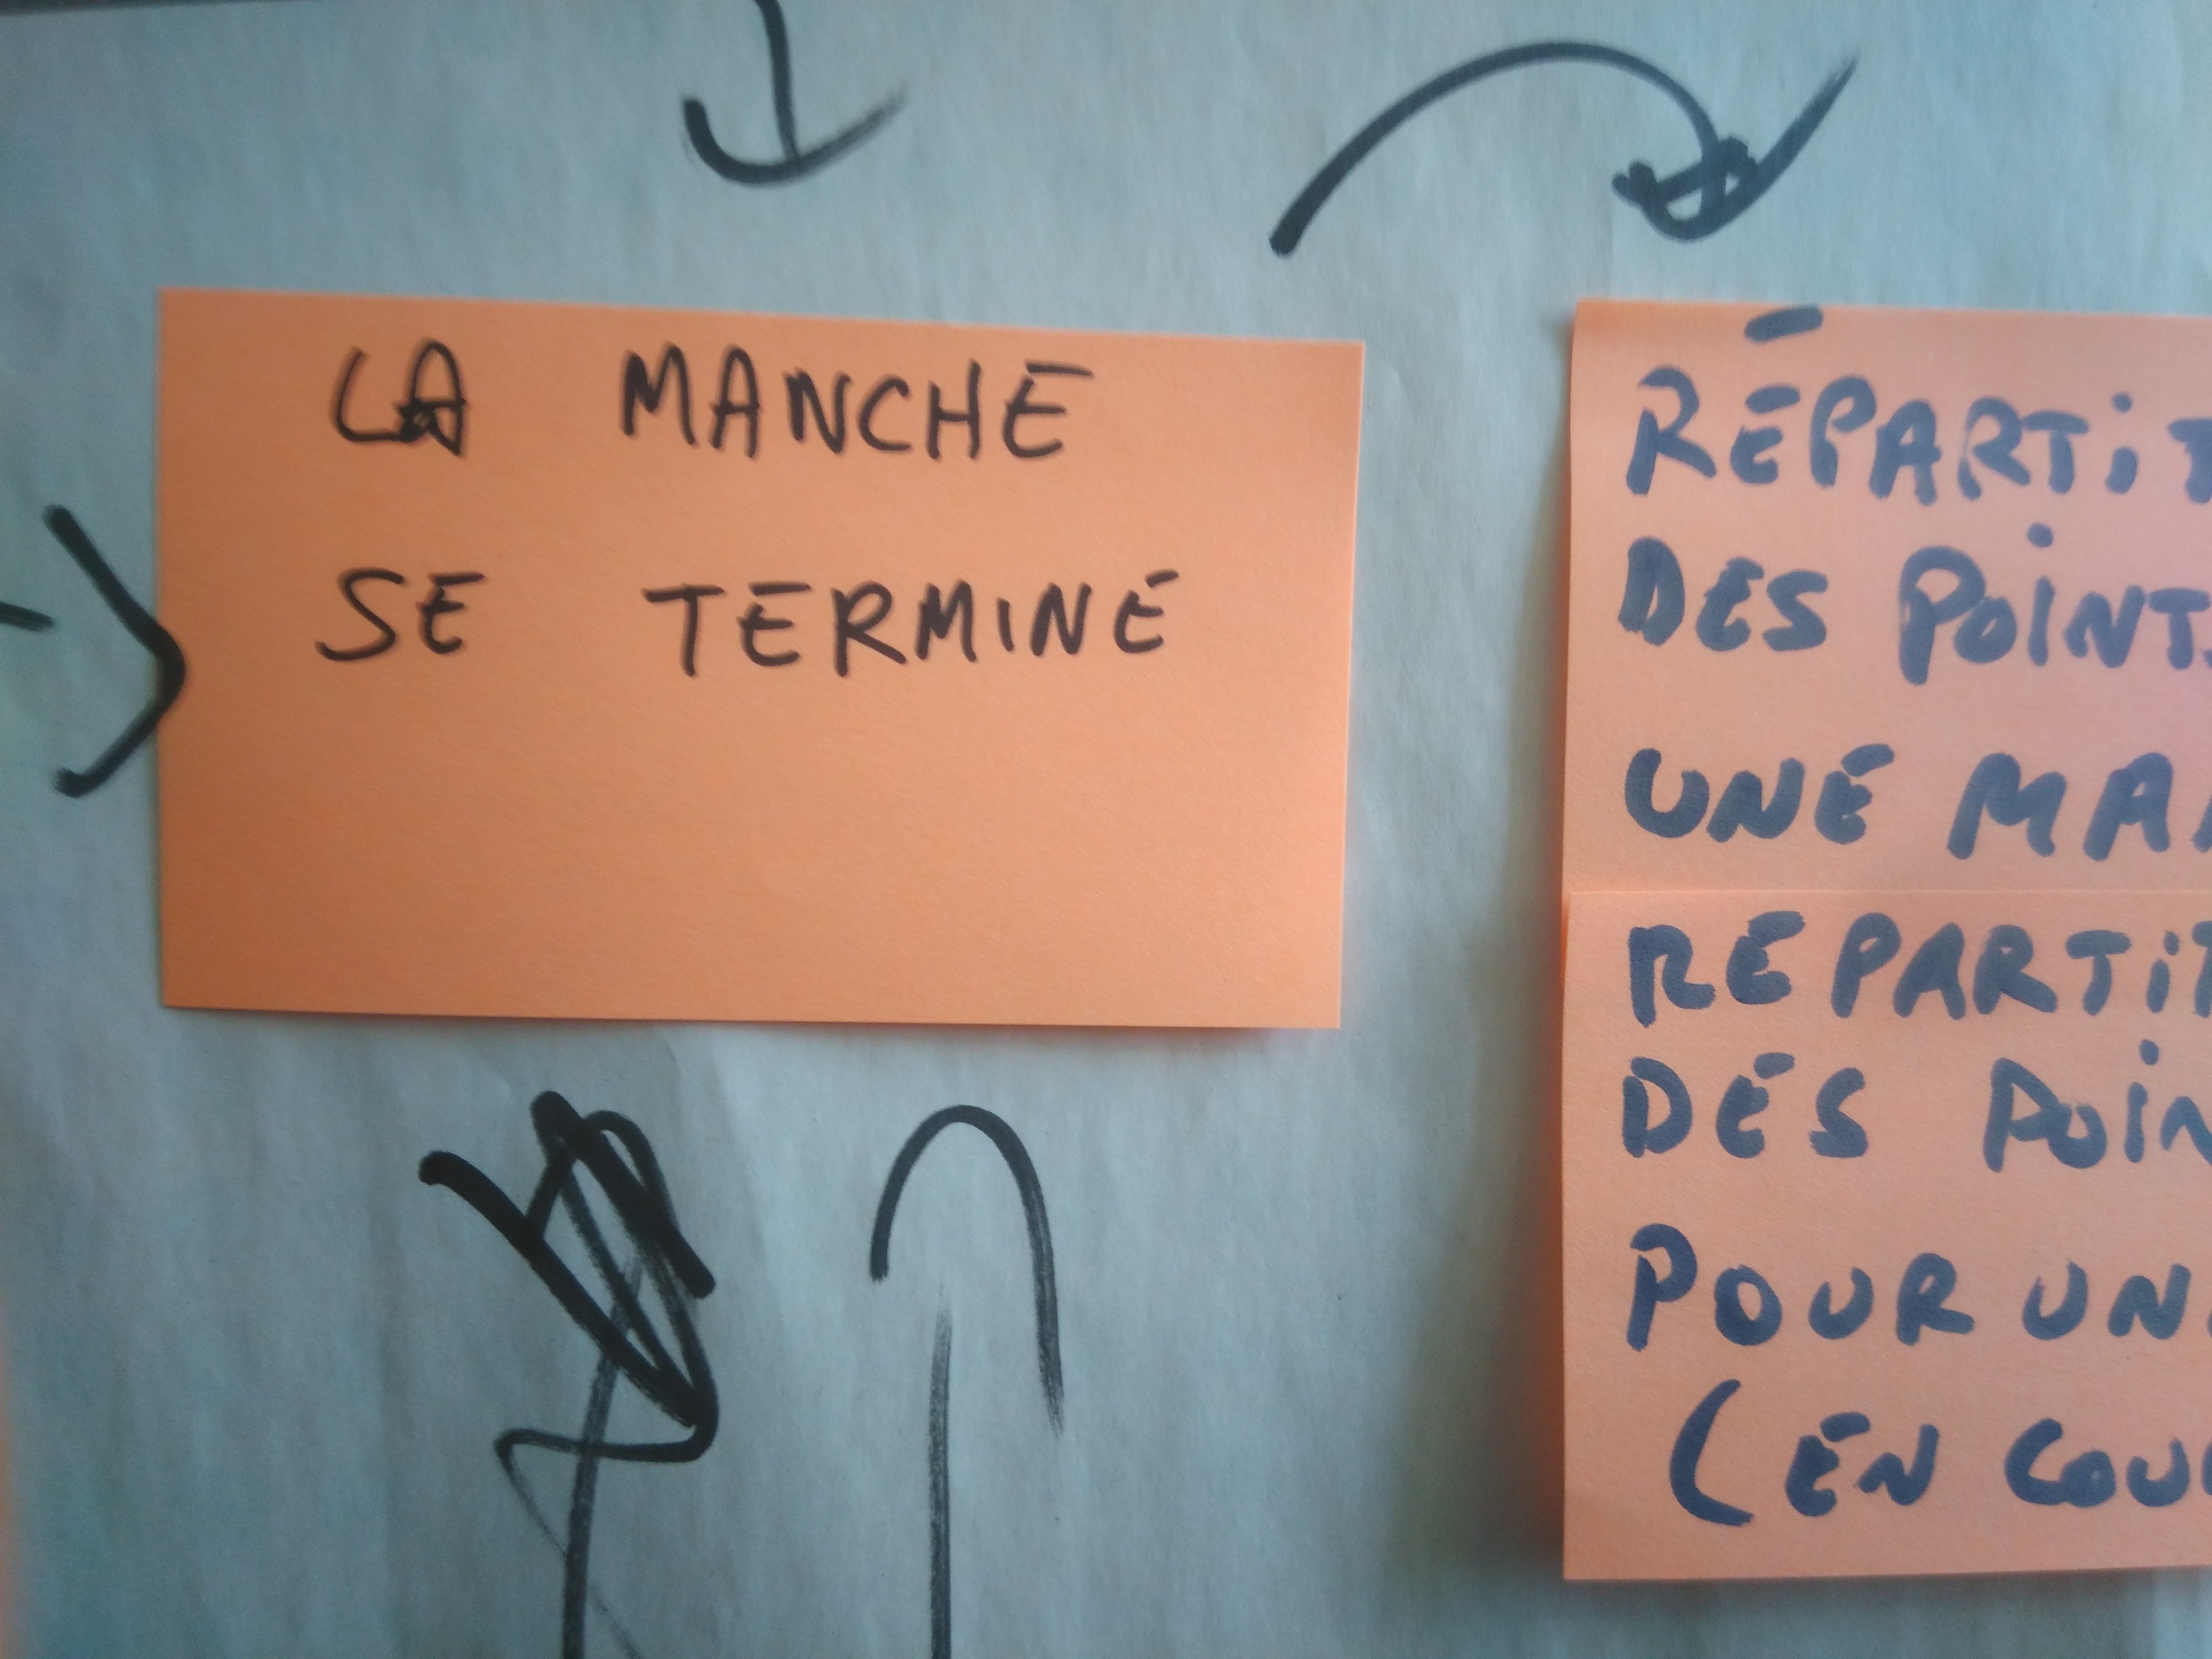 LA MANCHE
SE TERMINE
RÉPARTIT
DES POINTS
UNE MA
REPARTIT
DES POIN
POUR UN
(EN COU